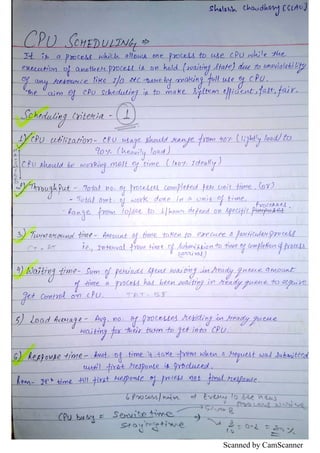 Shalabh Chaudhary [GLAU]
CPU SCHEDULING ⇒
It is a process which allows one process to use CPU while the
execution of another process is on held (waiting state) due to unavailability
of any resource like I/O etc there by making full use of CPU.
The aim of CPU scheduling is to make system efficient, fast, fair.
Scheduling Criteria - ①
1) CPU utilization - CPU usage should range from 40% (lightly load) to
90% (heavily load)
CPU should be working most of time (100% Ideally)
2) Throughput - Total no. of processes completed per unit time (or)
- Total amt. of work done in a unit of time.
Range from 10/sec to 1/hour depend on specific processes.
3) Turnaround time - Amount of time taken to execute a particular process
i.e., Interval from time of submission to time of completion of process
4) Waiting time - Sum of periods spent waiting in ready queue amount
of time a process has been waiting in ready queue to acquire
get control on CPU. TAT - BT
5) Load Average - Avg. no. of processes residing in ready queue
waiting for their turn to get into CPU.
6) Response time - Amt. of time it take from when a request was submitted
until first response is produced.
Rem - It's time till first response of process not final response.
6 Process/min
CPU busy = Service time
Scanned by CamScanner